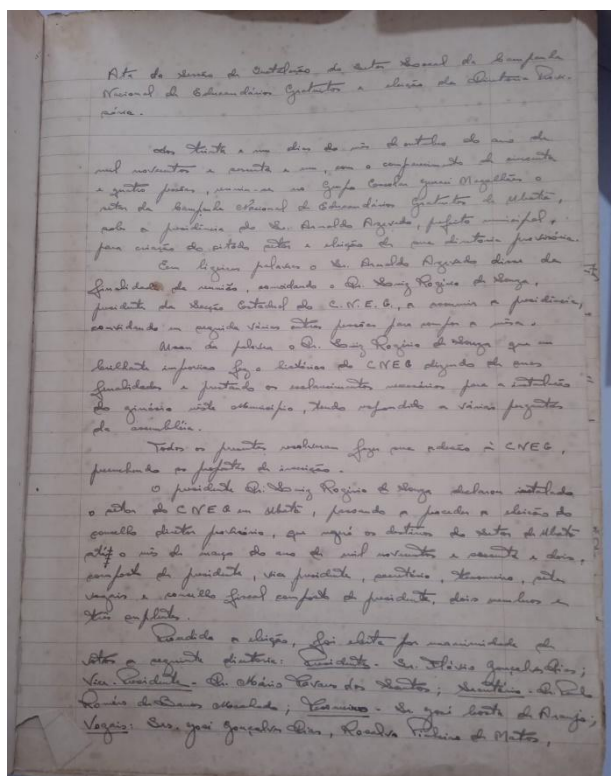 Ata da sessão de instalação do setor local da Campanha
Nacional de Educandários Gratuitos e eleição da diretoria Provi-
sória.
Aos trinta e um dias do mês de outubro do ano de
mil novecentos e sessenta e um, com o comparecimento de
e quatro pessoas, reuniu-se no Grupo Escolar José Magalhães o
setor da Campanha Nacional de Educandários Gratuitos de Ubatã,
sob a presidência do Sr. Arnaldo Azevedo, prefeito municipal,
para criação do citado setor e eleição de sua diretoria provisória.
Em ligeiras palavras o Sr. Arnaldo Azevedo disse da
finalidade da reunião, convidando o Dr. Luiz Rogério de Souza,
presidente da Secção Estadual do C.N.E.G., a assumir a presidência,
convidando em seguida várias outras pessoas para compor a mesa.
Usou da palavra o Dr. Luiz Rogério de Souza que em
brilhante improviso fez o histórico do CNEG dizendo de suas
finalidades e prestando os esclarecimentos necessários para a instalação
do ginásio neste Município, tendo respondido a várias perguntas
da assembléia.
Todos os presentes resolveram fazer sua adesão à CNEG,
preenchendo as propostas de inscrição.
O presidente Dr. Luiz Rogério de Souza declarou instalado
o setor do CNEG em Ubatã, passando a proceder a eleição do
conselho diretor provisório, que regerá os destinos do Setor de Ubatã
até o mês de março do ano de mil novecentos e sessenta e dois,
composto de presidente, vice presidente, secretário, tesoureiro, sete
vogais, e conselho fiscal composto de presidente, dois membros e
três suplentes.
Procedida a eleição, foi eleita por unanimidade de
votos a seguinte diretoria: Presidente - Sr. Flávio Gonçalves Dias;
Vice-Presidente - Dr. Mário Tavares dos Santos; Secretário - Dr. Paulo
Machado; Tesoureiro - Sr. José Costa de Araujo;
Vogais: Srs. José Gonçalves Dias, Rosalvo Pinheiro de Matos,